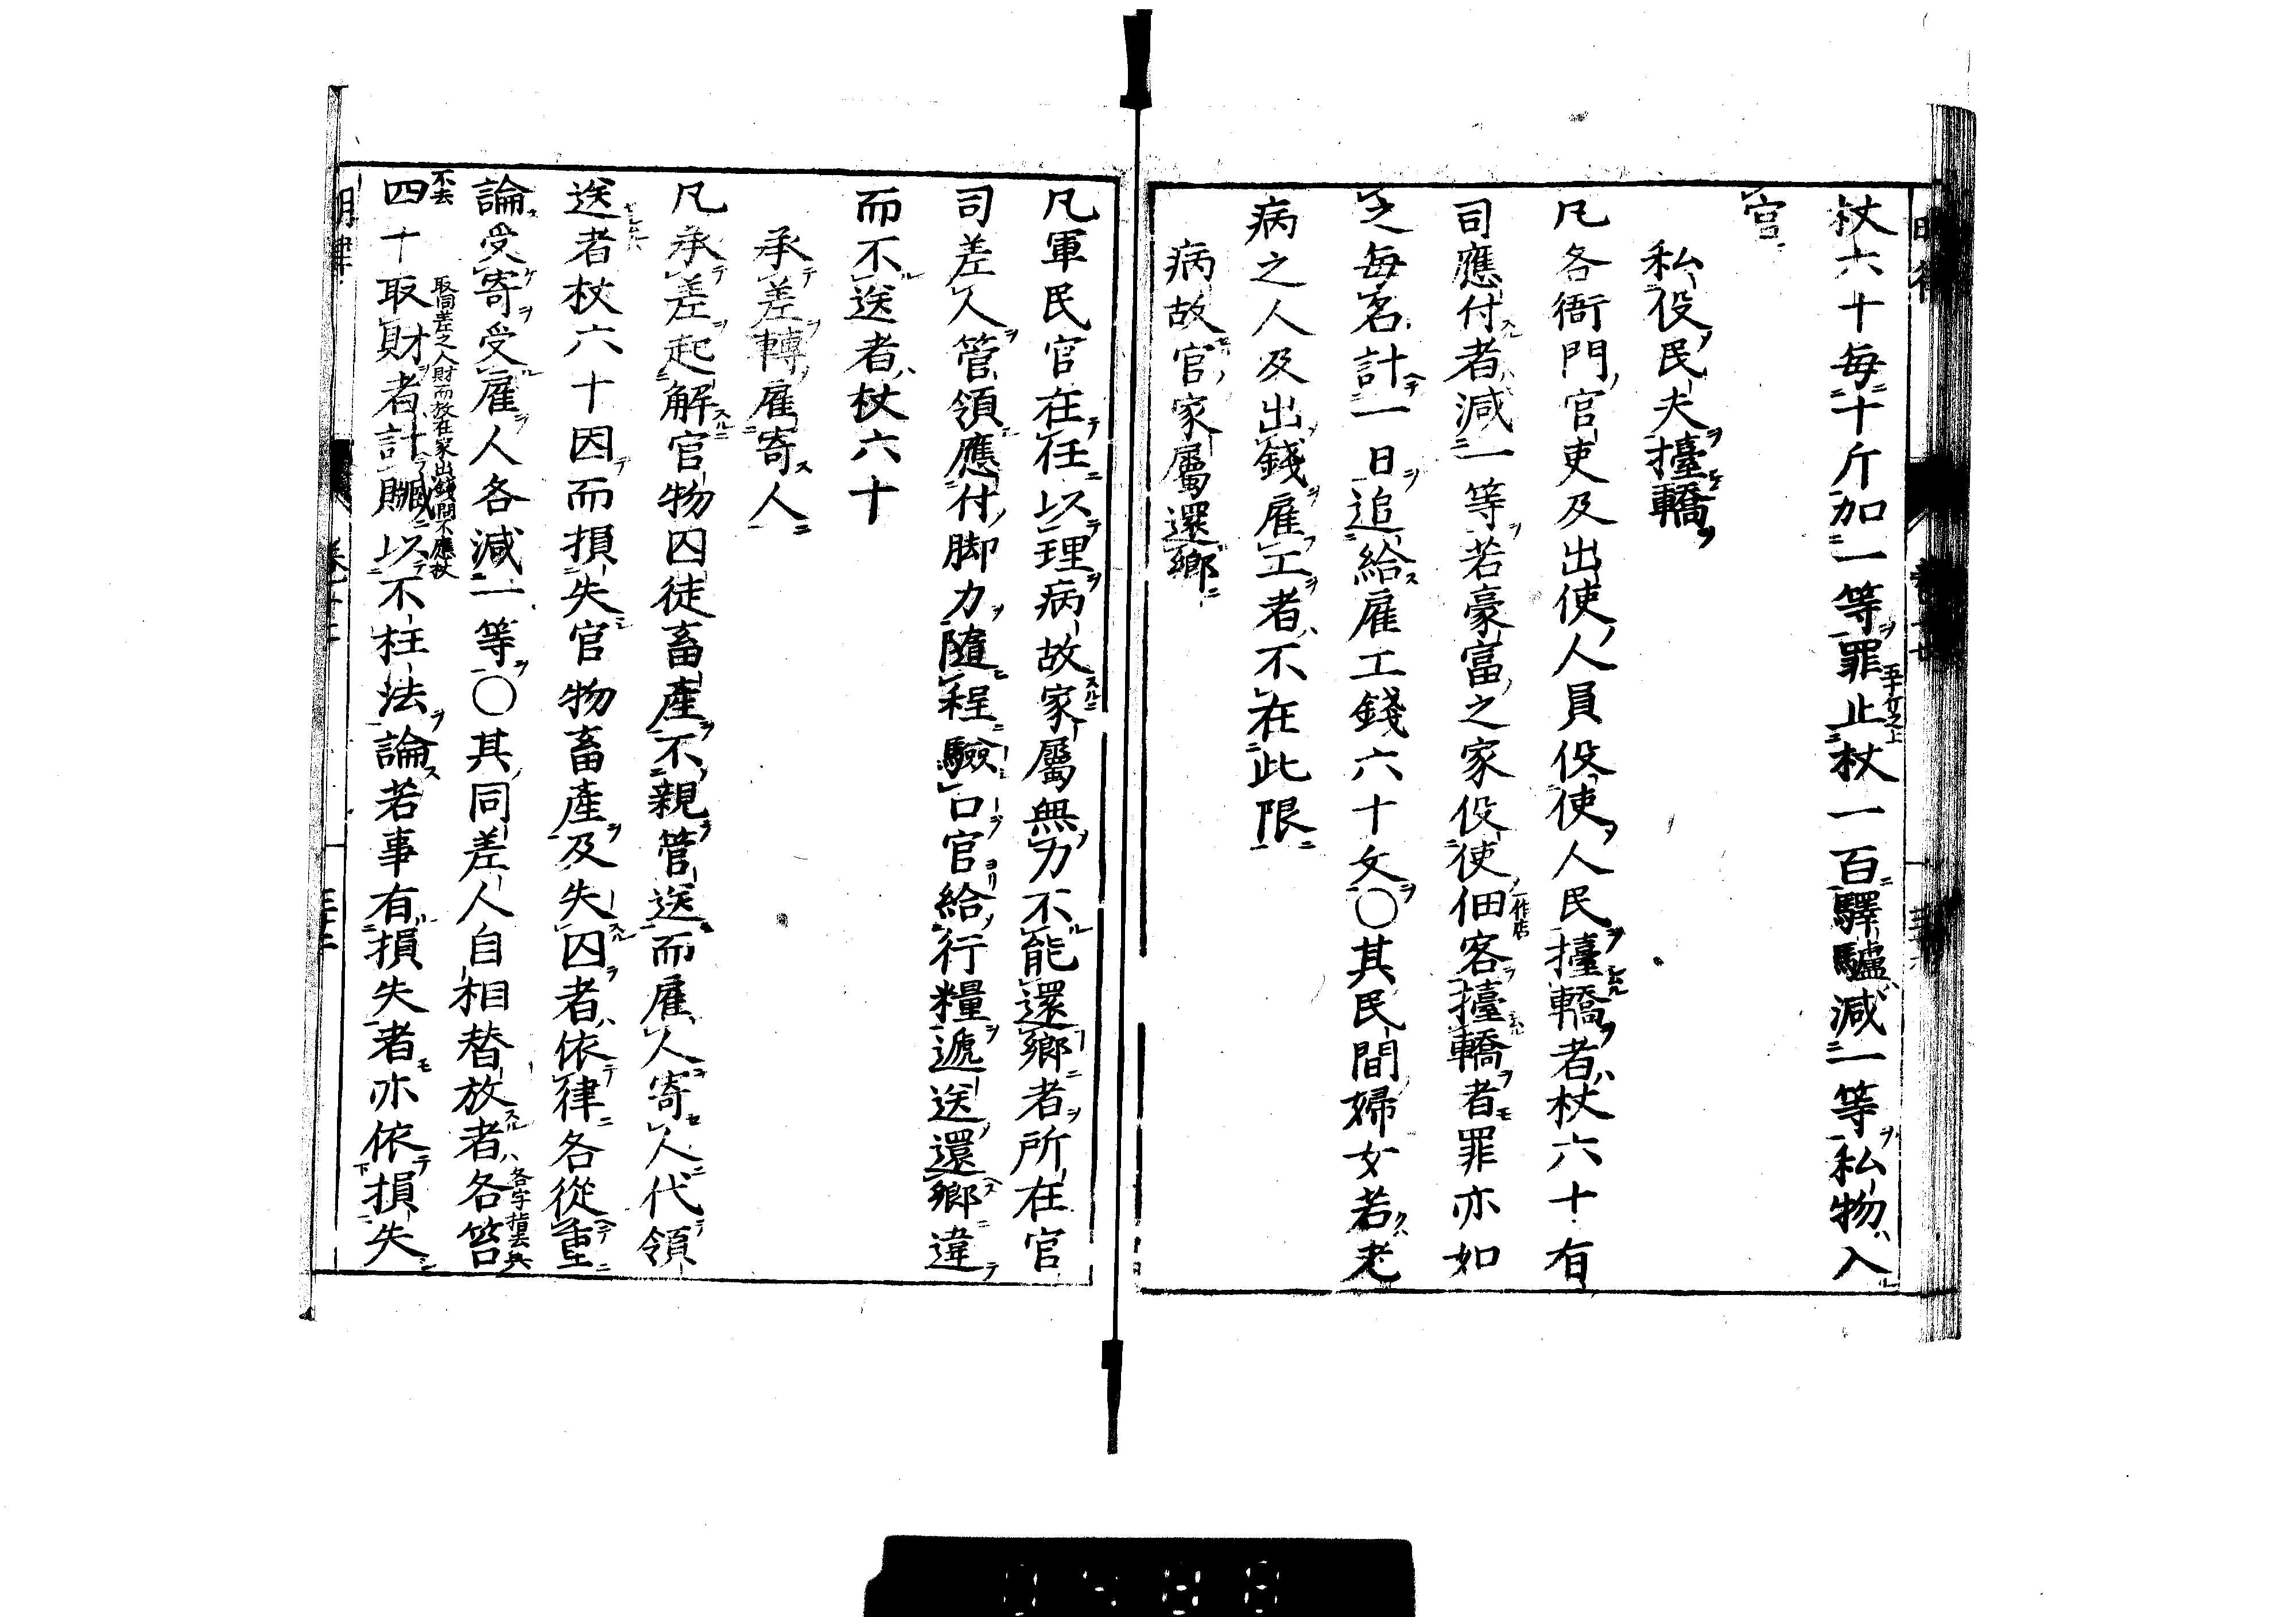 杖六十每十斤加一等罪止杖一百驛驢減一等私物入
官
私役民夫擡轎
凡各衙門官吏及出使人員役使人民擡轎者杖六十有
司應付者減一等若豪富之家役使佃客擡轎者罪亦如
之每名計一日追給雇工錢六十文○其民間婦女若老
病之人及出錢雇工者不在此限
病故官家屬還鄉
凡軍民官在任以理病故家屬無力不能還鄉者所在官
司差人管領應付脚力隨程驗口官給行糧遞送還鄉違
而不送者杖六十
承差轉雇寄人
凡承差起解官物囚徒畜產不親管送而雇人寄人代領
送者杖六十因而損失官物畜產及失囚者依律各從重
論受寄受雇人各減一等○其同差人自相替放者各笞
四十取財者計贓以不枉法論若事有損失者亦依損失